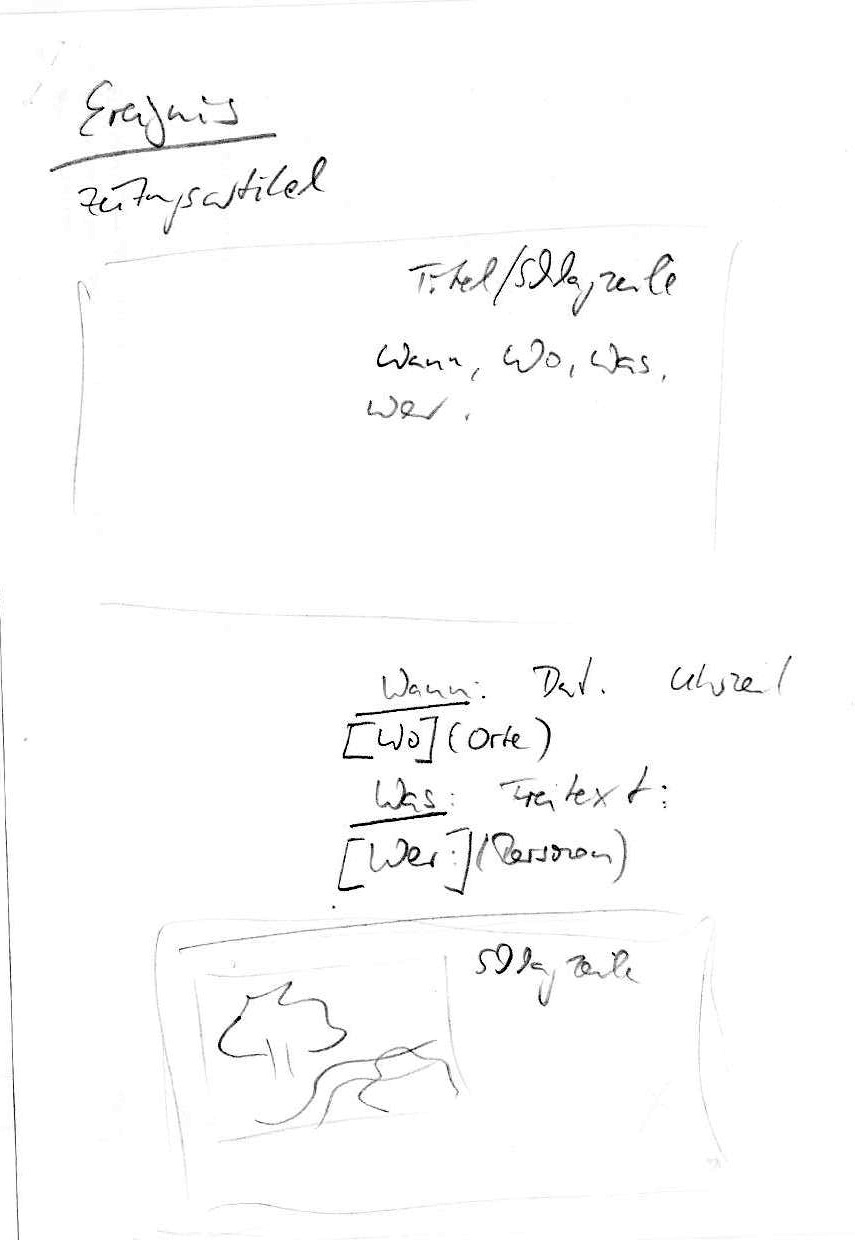 Ereignis
Zeitungsartikel
Titel/Schlagzeile
Wann, Wo, Was,
Wer.
Wann: Dat. Uhrzeit
[Wo] (Orte)
Was: Freitext:
[Wer:] (Personen)
Schlagzeile